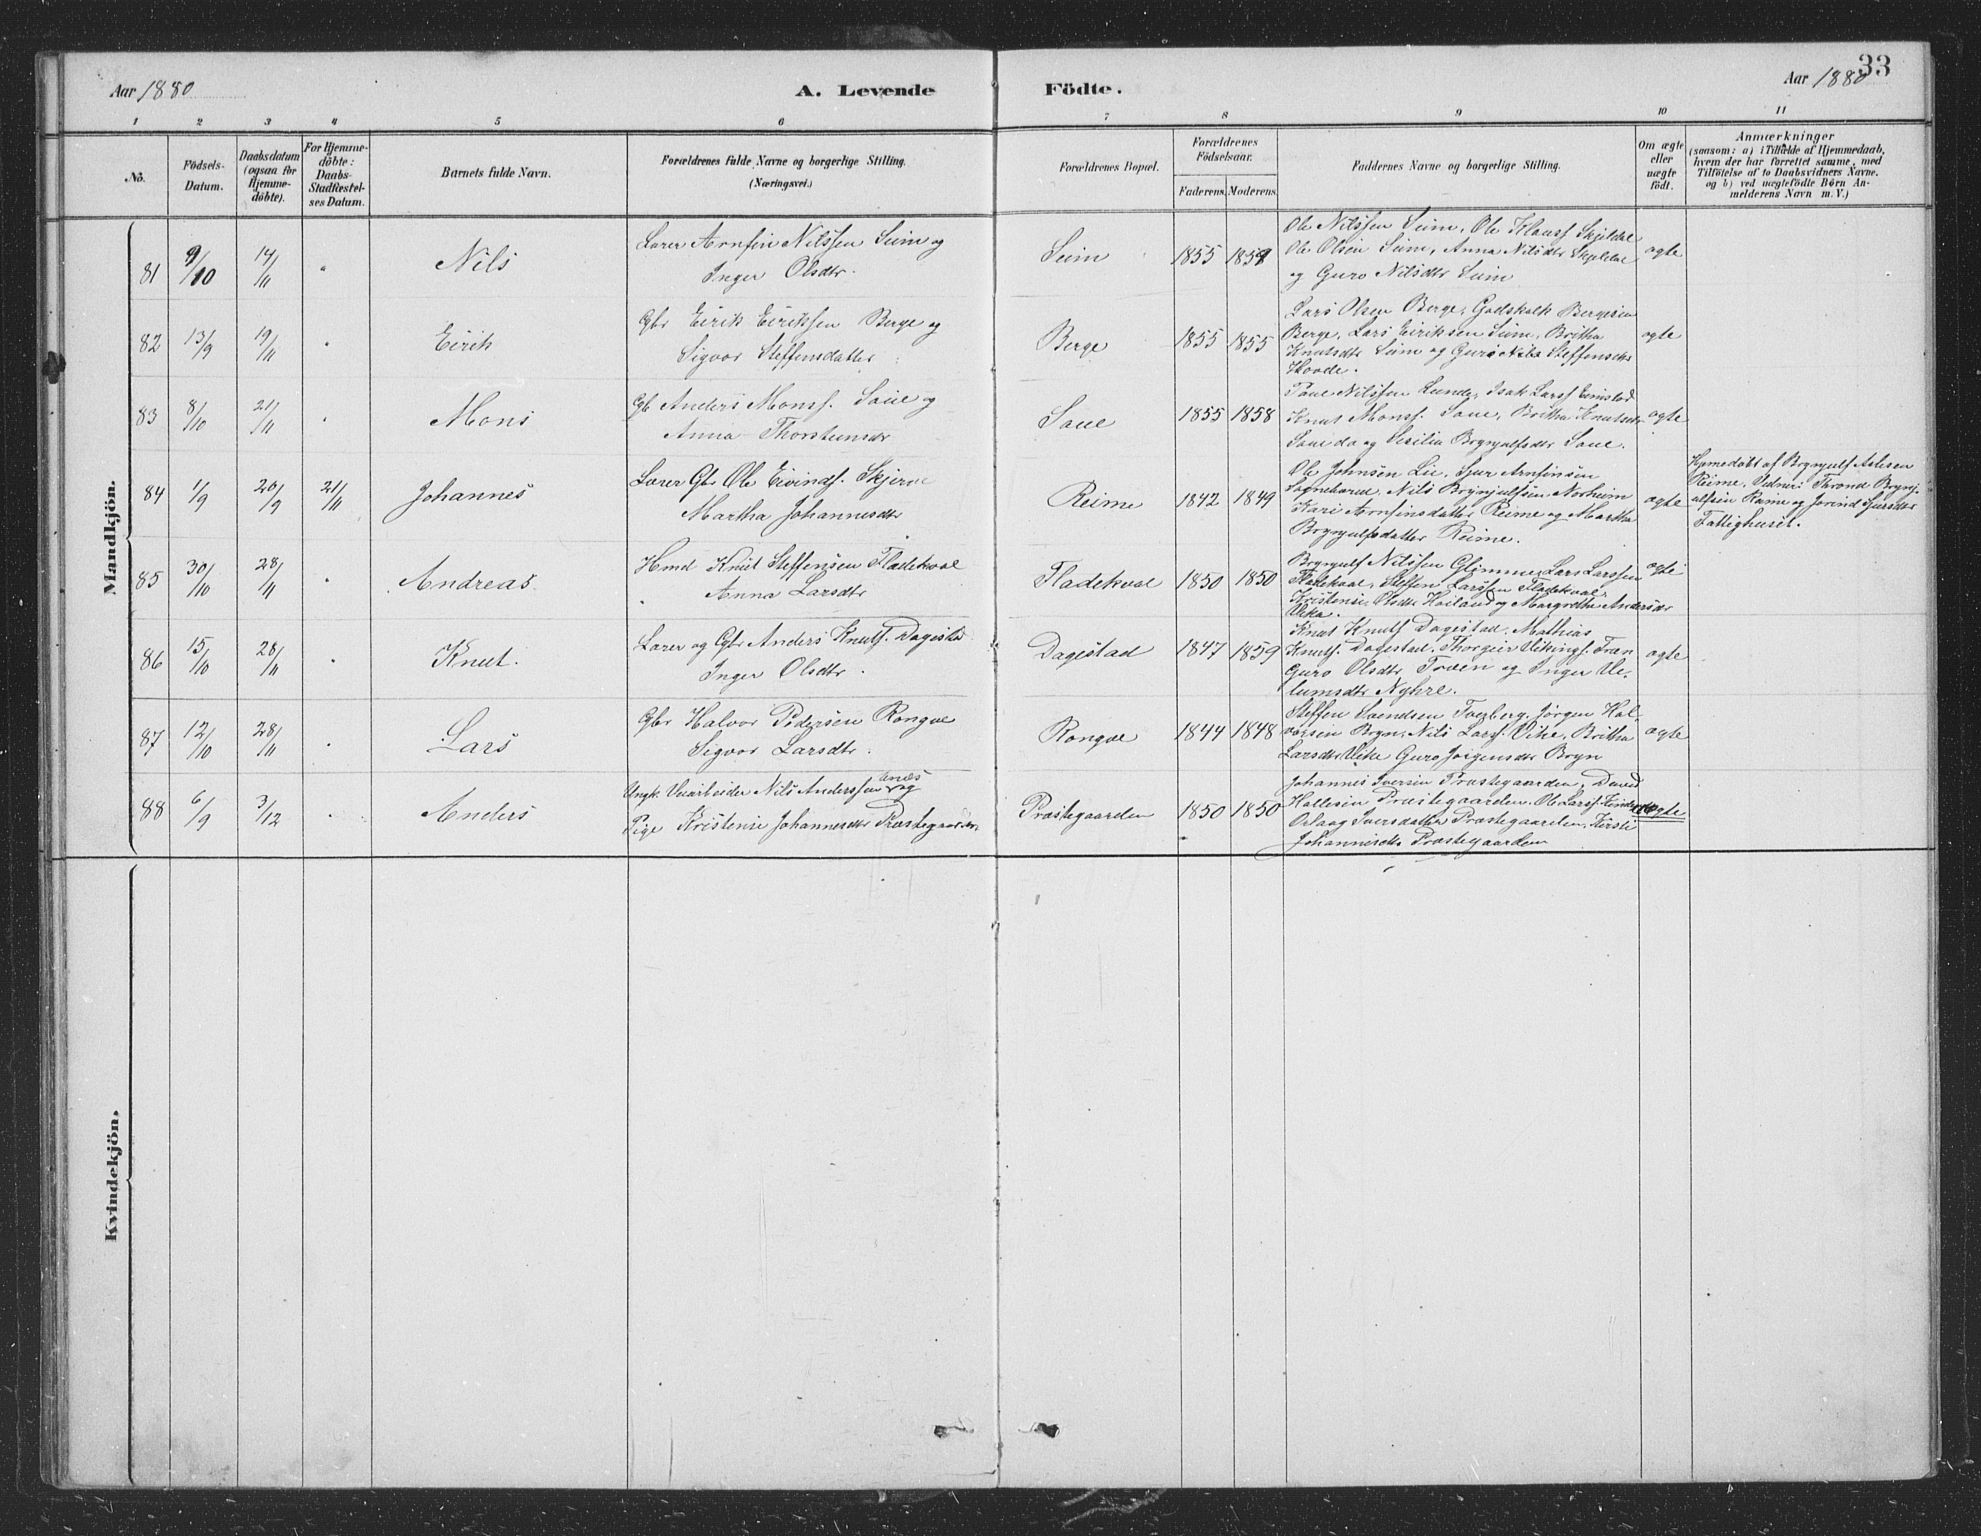 Aar 1880
A. Levende Födte.
33
Aar 1880
1 2 3 4 5 6 7 8 9 10 11
No.
Födsels-
Datum.
Daabsdatum
(ogsaa for
Hjemme-
døbte).
For Hjemme-
döbte:
Daabs-
Stadfæstel-
ses Datum.
Barnets fulde Navn.
Forældrenes fulde Navne og borgerlige Stilling.
(Næringsvei.)
Forældrenes Bopæl.
Forældrenes
Födselsaar.
Faderens. Moderens.
Faddernes Navne og borgerlige Stilling.
Om ægte
eller
uægte
födt.
Anmærkninger
(saasom: a) i Tilfælde af Hjemmedaab,
hvem der har forrettet samme, med
Tilföielse af to Daabsvidners Navne.
og b) ved uægtefödte Börn An-
melderens Navn m. V.)
Mandkjön.
81 9/10 14/11 " Nils
Lærer Arnfin Nilssen Seim og
Inger Olsdtr.
Seim 1855 1859
Ole Nilssen Seim, Ole Klausf Skjeldal
Ole Olsen Seim, Anna Nilsdtr Skjeldal
og Guro Nilsdtr Seim
ægte
82 13/9 19/11 " Eirik
Gbr Eirik Eiriksen Berge og
Sigvor Steffensdatter
Berge 1855 1855
Lars Olsen Berge, Godskalk Bergesen
Berge, Lars Eiriksen Seim, Britha
Knutsdtr Seim og Steffensdtr
Hovde.
ægte
83 8/10 21/11 " Mons
Gb Anders Monsf. Saue og
Anna Thorsteinsdr
Saue 1855 1858
Nilssen Lunde, Isak Larsf
Knut Monsf. Saue, Britha Knutsdtr
Saue da og Sesilia Brynjulfsdtr Saue.
ægte
84 1/9 20/9 21/11 Johannes
Lærer Gbr Ole Eivindf. Skjerve
Martha Johannesdtr
Reime 1842 1849
Ole Johnsen Lie, Sjur Arnfinsen
Nils Brynjulfsen Norheim
Kari Arnfinsdatter Reime og Martha
Brynjulfsdatter Reime.
ægte
Hjemedøbt af Brynjulf Aslesen
Reime. Vidner: Thrond Brynj-
ulfsen Rame og Sjursdtr
Fattighuset.
85 30/10 28/11 " Andreas
Hmd Knut Steffensen Fladekval
Anna Larsdtr
Fladekval 1850 1850
Brynjulf Nilssen Glimme, Lars Larssen
Fladekval, Steffen Larssen Fladekval,
Kristense Olsdtr og Margretha Andersdtr
ægte
86 15/10 28/11 " Knut.
Lærer og Gbr Anders Knutf. Dagestad
Inger Olsdtr.
Dagestad 1847 1859
Knut Knutf Dagestad, Mathias
Knutf. Dagestad, Thorgeir Vikingf. Træn
Guro Olsdtr Træen og Inger Ve-
lumsdtr Nyhre.
ægte
87 12/10 28/11 " Lars
Gbr Halvor Pedersen Rongve
Sigvor Larsdtr.
Rongve 1844 1848
Steffen Svendsen Tvedberg, Jørgen Hal-
vorsen Bryn, Nils Larsf. Vike, Britha
Larsdtr Vike Guro Jørgensdtr Bryn
ægte
88 6/9 3/12 " Anders
Ungk. Veiarbeider Nils Anderssen og
Pige Kristense Johannesdtr Præstegaarden
Præstegaarden 1850 1850
Johannes Iversen Præstegaarden, David
Hallesen Præstegaarden, Ole Larsf.
Orlaag Iversdatter Præstegaarden, Kirsti
Johannesdtr. Præstegaarden
uægte
Kvindekjön.